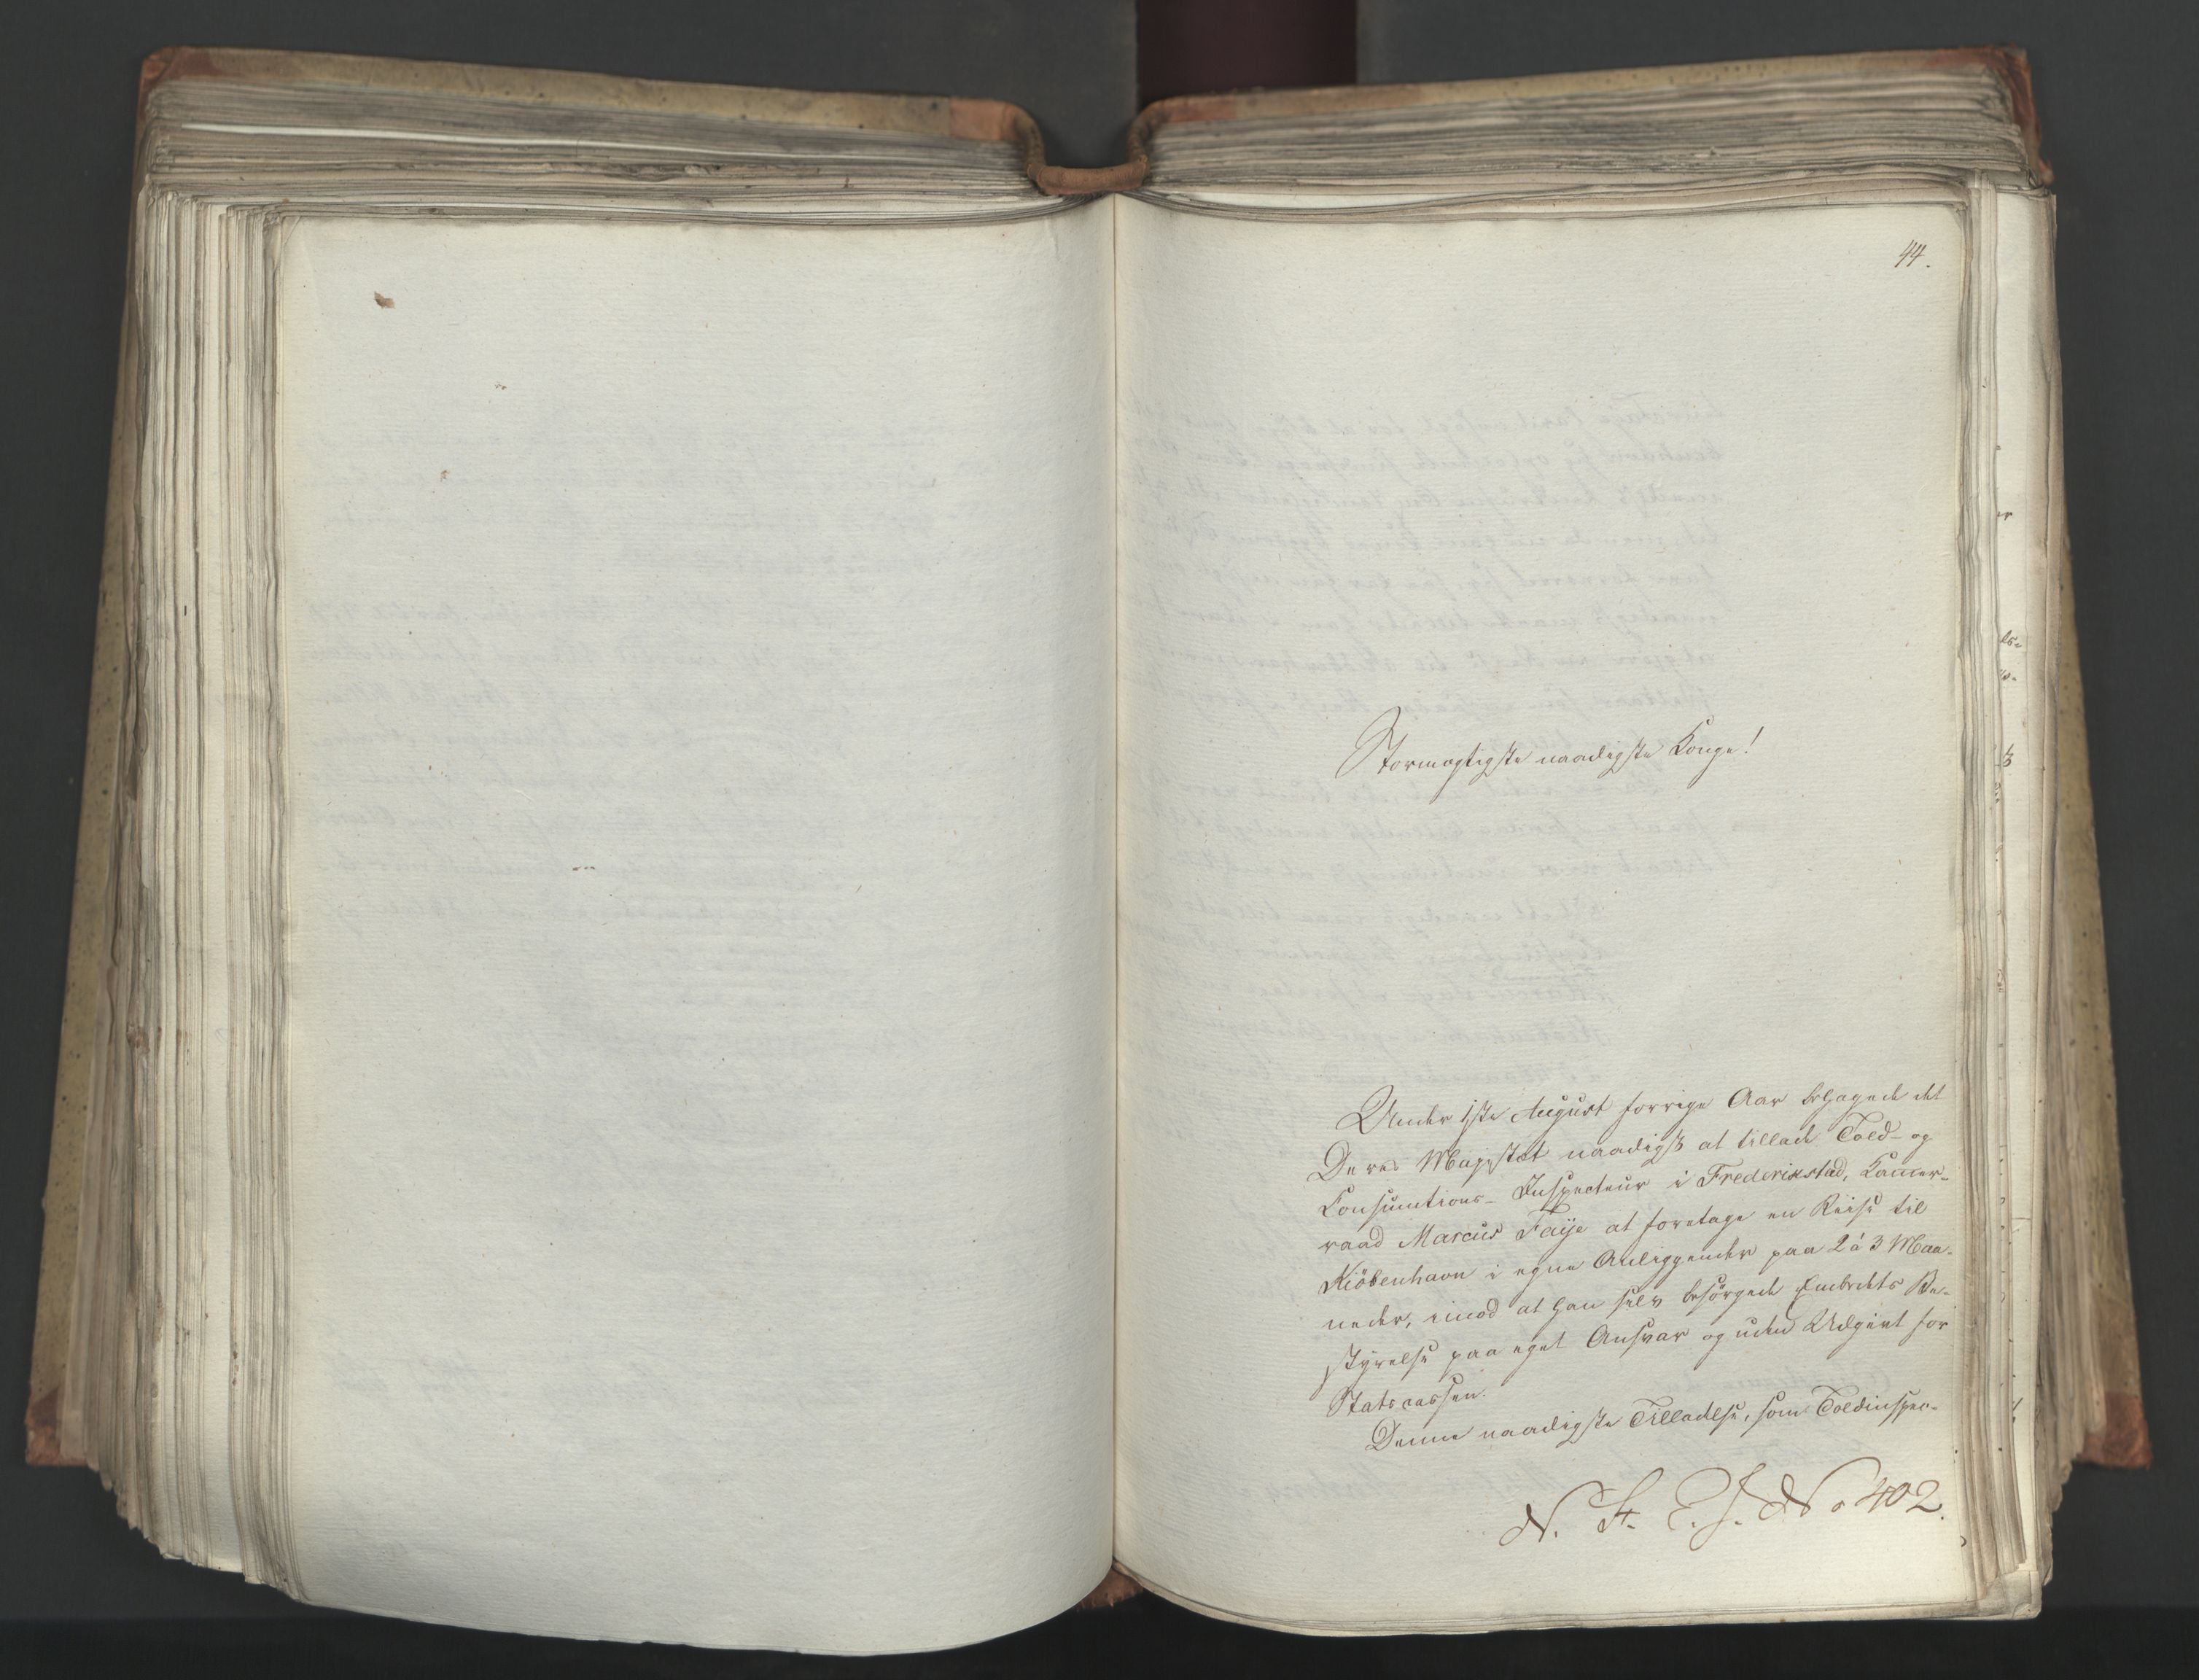 44.
Stormægtigste naadigste Konge!
Under 1ste August forrige Aar behagede det
Deres Majestæt naadigst at tillade Told- og
Consumtions-Inspecteur i Frederikstad, Kammer-
raad Marcus Faije at foretage en Reise til
Kiöbenhavn i egne Anliggender paa 2 à 3 Maa-
neder, imod at han selv besörgede Embedets Be-
styrelse paa eget Ansvar og uden Udgivt for
Statscassen.
Denne naadigste Tilladelse, som Toldinspec-
N. St. E. J. No 402.